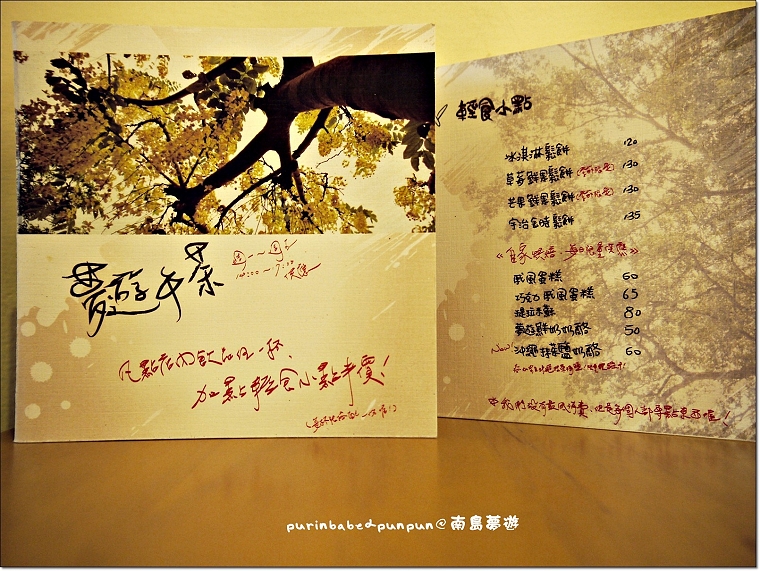 夢遊午茶
週一~週五
14:00~17:00
供應
凡點店內飲品任一杯、
加點輕食小點半價!
輕食小點
冰淇淋鬆餅 120
草莓鮮果鬆餅(季節限定) 130
芒果鮮果鬆餅(季節限定) 130
宇治金時鬆餅 135
《自家烘焙·每日限量供應》
戚風蛋糕 60
巧克力戚風蛋糕 65
提拉米蘇 80
夢遊鮮奶奶酪 50
New! 沖繩抹茶鹽奶酪 60
purinbabe@punpun@南島夢遊